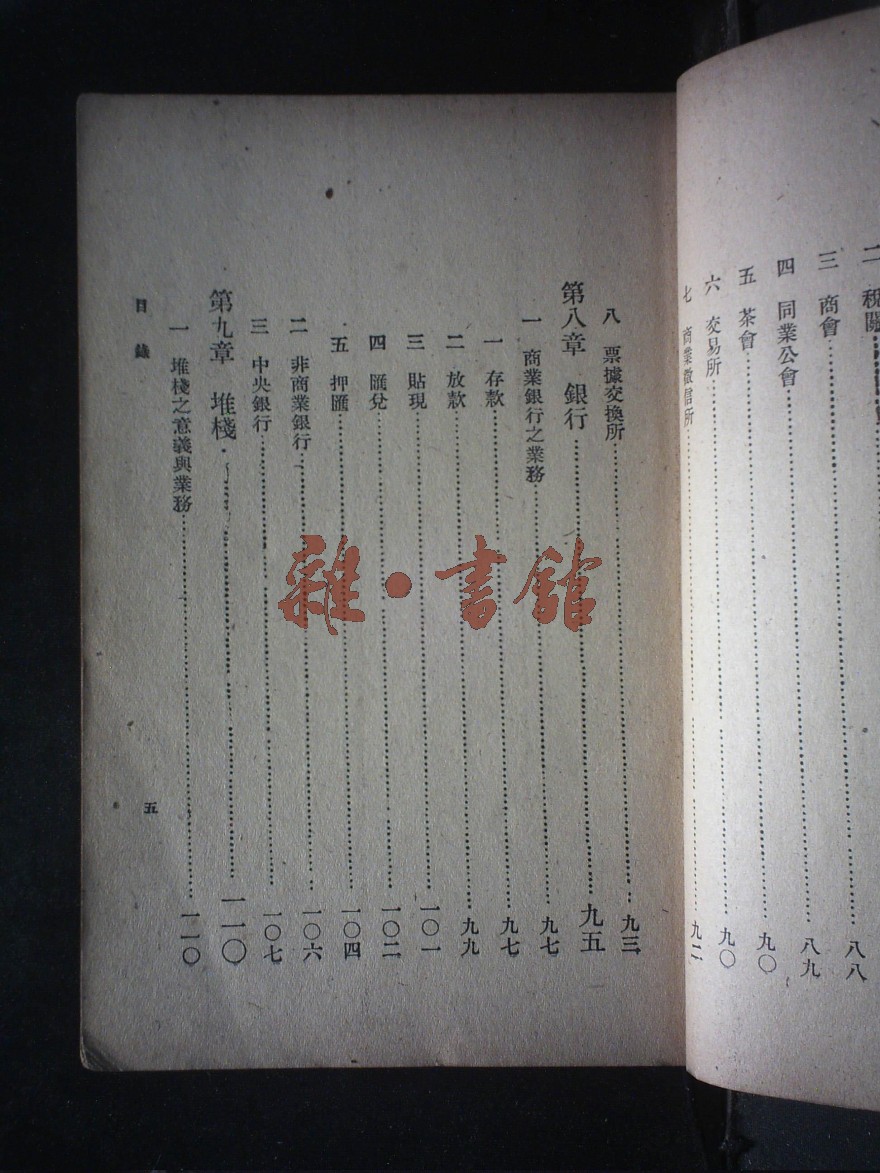 二 税關
三 商會………八八
四 同業公會………八九
五 茶會………九〇
六 交易所………九〇
七 商業徵信所………九二
八 票據交換所………九三
第八章 銀行………九五
一 商業銀行之業務………九七
一 存款………九七
二 放款………九九
三 貼現………一〇一
四 匯兌………一〇二
五 押匯………一〇四
二 非商業銀行………一〇六
三 中央銀行………一〇七
第九章 堆棧………一一〇
一 堆棧之意義與業務………一一〇
目錄
五
雜·書館